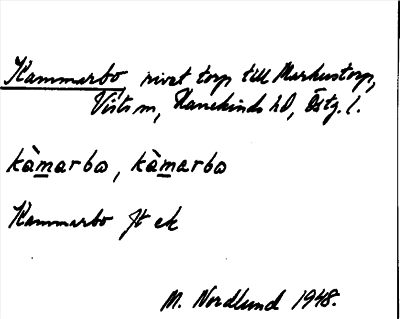 Kammarbo rivet torp till Markustorp,
Vists sn, Hanekinds hd, Östg. l.
kàmarbo, kàmarbo
Kammarbo Jt ek
M. Nordlund 1948.